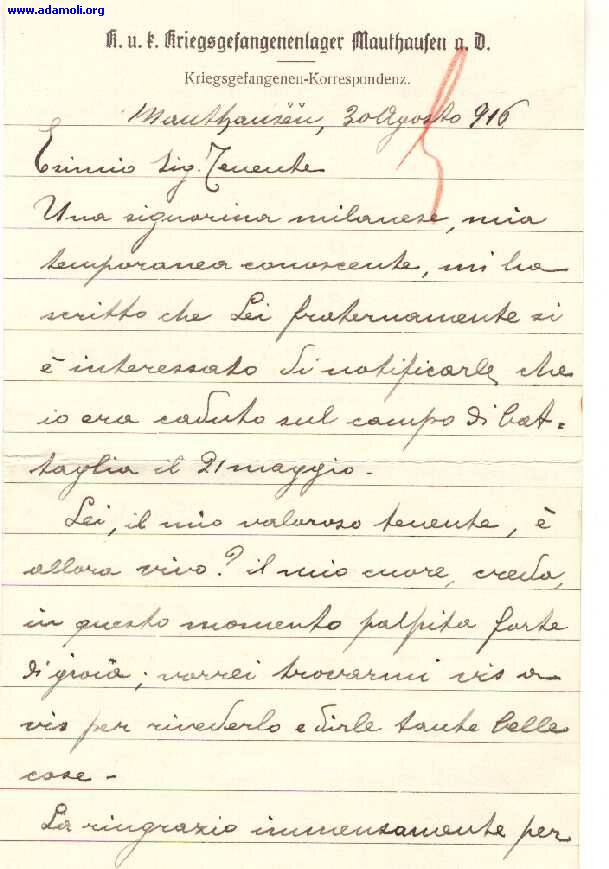 www.adamoli.org
K. u. k. Kriegsgefangenenlager Mauthausen a. D.
Kriegsgefangenen-Korrespondenz.
Mauthausen, 30 Agosto 916
Esimio Sig. Tenente
Una signorina milanese, mia
temporanea conoscente, mi ha
scritto che Lei fraternamente si
è interessato di notificarle che
io era caduto sul campo di bat=
taglia il 21 maggio -
Lei, il mio valoroso tenente, è
allora vivo? il mio cuore, creda,
in questo momento palpita forte
di gioia; vorrei trovarmi vis a
vis per rivederlo e dirle tante belle
cose -
La ringrazio immensamente per